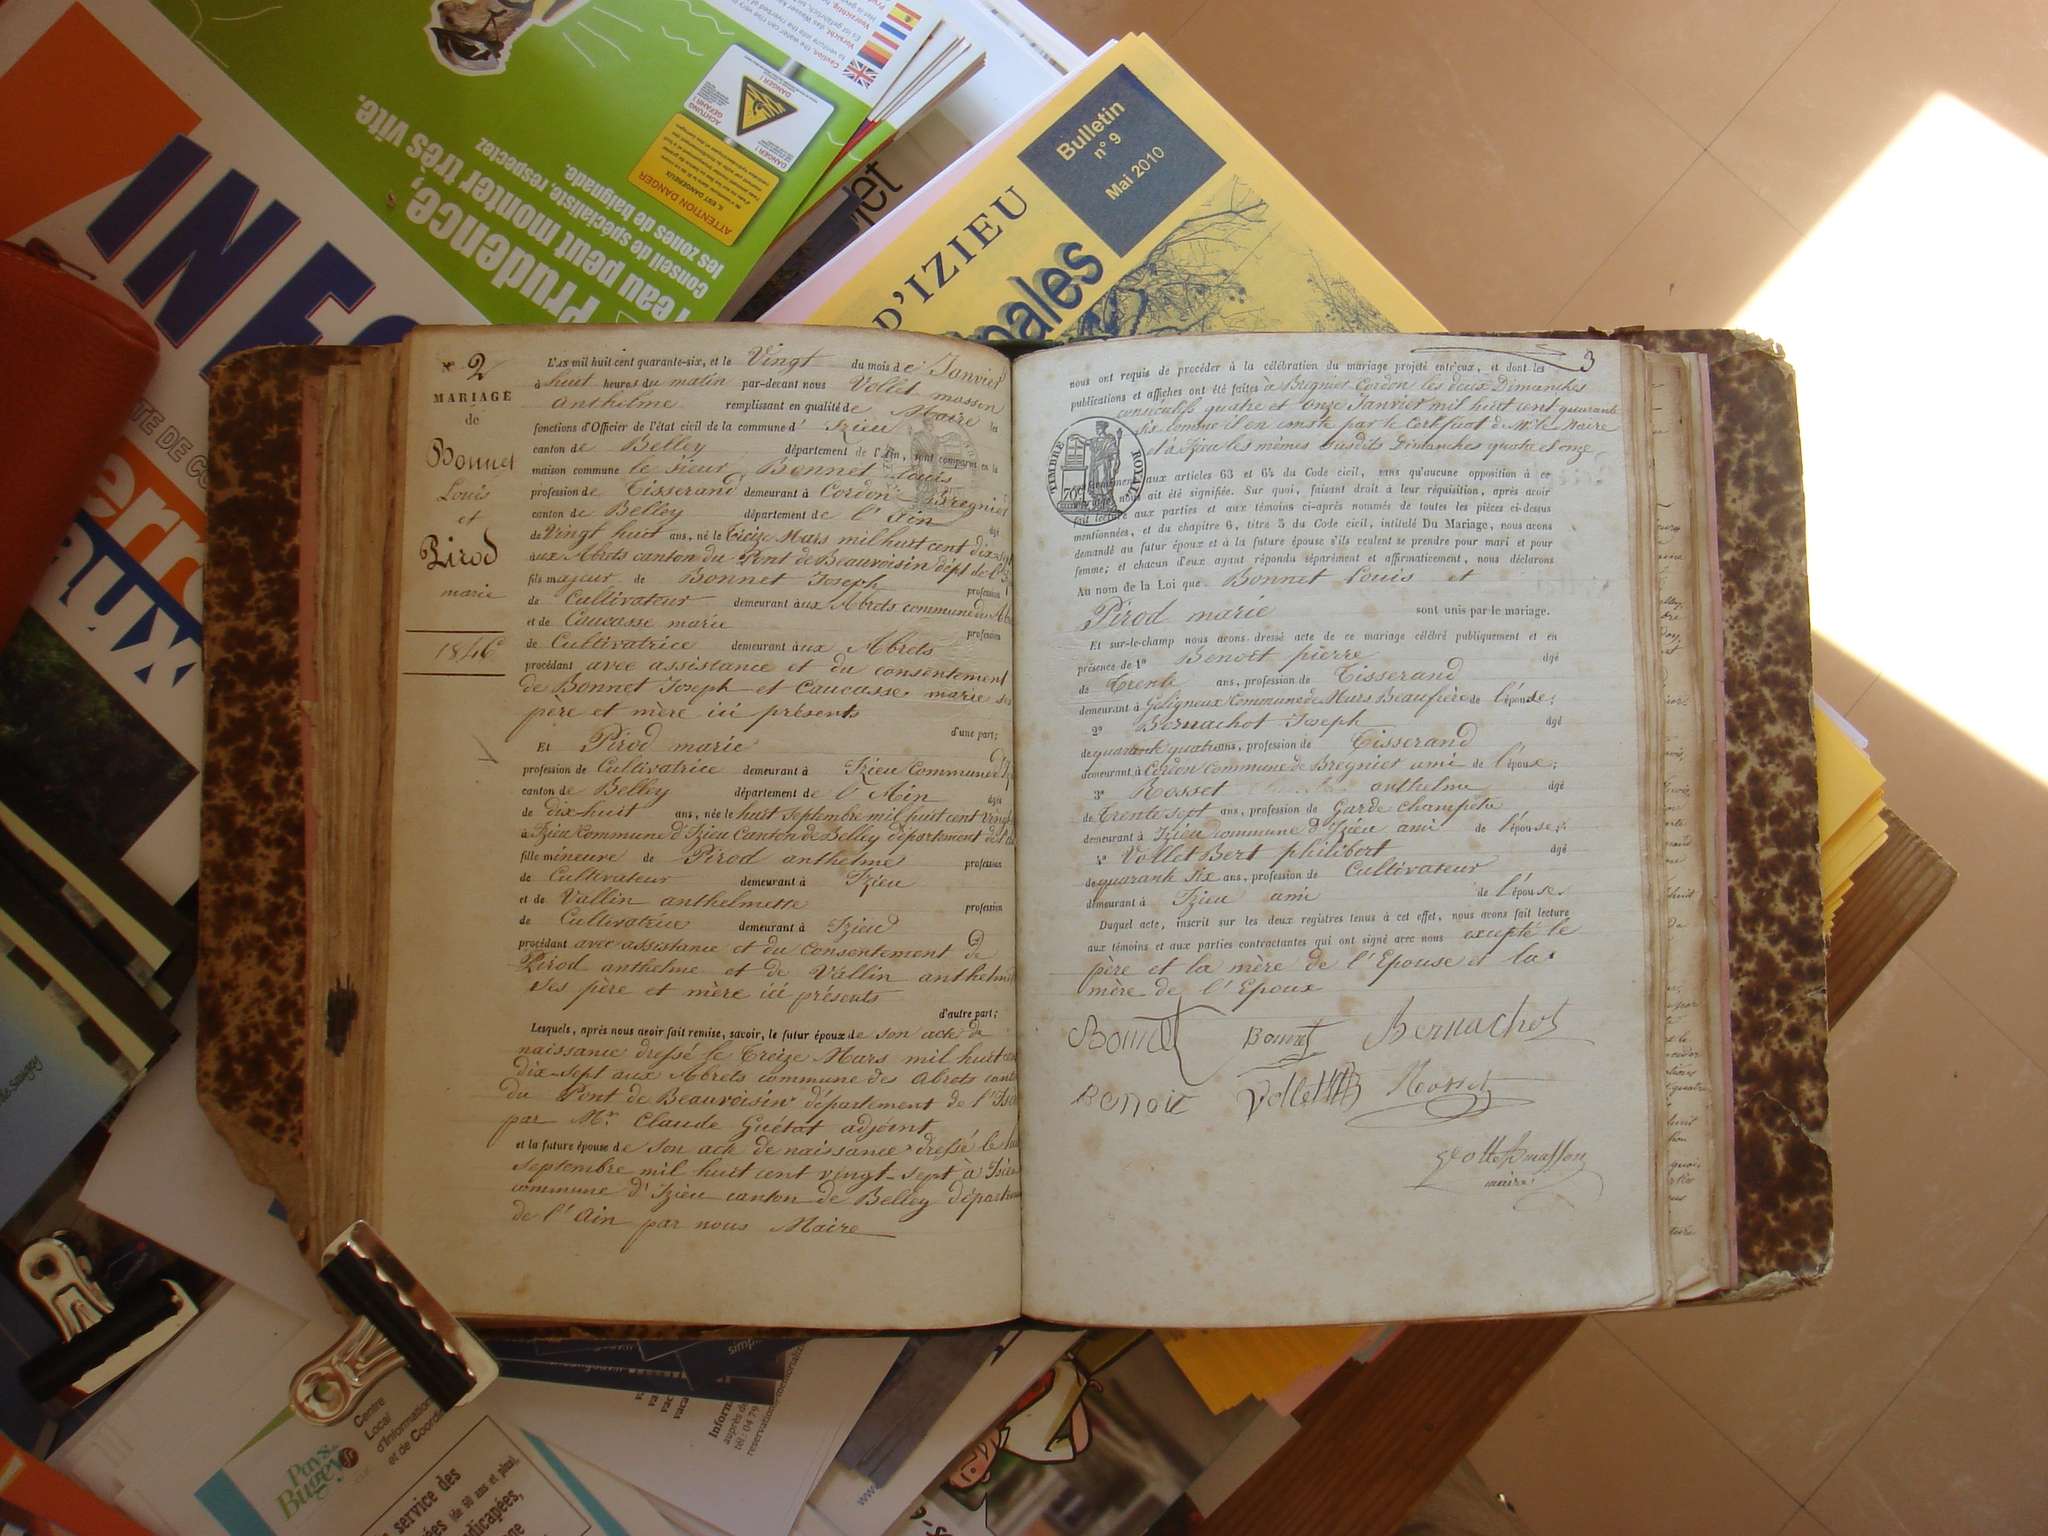 N° 2
MARIAGE
de
Bonnet
Louis
et
Pirod
marie
1846
L'an mil huit cent quarante-six, et le Vingt du mois de Janvier
à huit heures du matin par-devant nous Vollet masson
anthelme remplissant en qualité de Maire les
fonctions d'Officier de l'état civil de la commune d' Izieu
canton de Belley département de l'Ain, sont comparus en la
maison commune le sieur Bonnet Louis
profession de Tisserand demeurant à Cordon Bregnier
canton de Belley département de l'Ain âgé
de Vingt huit ans, né le Treize Mars mil huit cent dix-sept
aux Abrets canton du Pont de Beauvoisin dépt de
fils majeur de Bonnet Joseph profession
de Cultivateur demeurant aux Abrets commune
et de Caucasse marie profession
de Cultivatrice demeurant aux Abrets
procédant avec assistance et du consentement
de Bonnet Joseph et Caucasse marie
père et mère ici présents
d'une part;
Et Pirod marie
profession de Cultivatrice demeurant à Izieu Commune
canton de Belley département de l'Ain âgée
de dix-huit ans, née le huit Septembre mil huit cent vingt
à Izieu Commune d'Izieu Canton de Belley département de l'
fille mineure de Pirod anthelme profession
de Cultivateur demeurant à Izieu
et de Vallin anthelmette profession
de Cultivatrice demeurant à Izieu
procédant avec assistance et du consentement de
Pirod anthelme et de Vallin
ses père et mère ici présents
d'autre part;
Lesquels, après nous avoir fait remise, savoir, le futur époux de son acte de
naissance dressé le Treize Mars mil huit
dix-sept aux Abrets commune des Abrets
du Pont de Beauvoisin département de
par Mr Claude Guétat adjoint
et la future épouse de son acte de naissance dressé le
septembre mil huit cent vingt-sept à
commune d'Izieu canton de Belley
de l'Ain par nous Maire
3
nous ont requis de procéder à la célébration du mariage projeté entr'eux, et dont les
publications et affiches ont été faites à Bregnier Cordon les deux Dimanches
consécutifs quatre et onze Janvier mil huit cent quarante
six comme il en conste par le Certificat de Mr le Maire
et à Izieu les mêmes susdits Dimanches quatre et onze
TIMBRE ROYAL
70c
aux articles 63 et 64 du Code civil, sans qu'aucune opposition à ce
nous ait été signifiée. Sur quoi, faisant droit à leur réquisition, après avoir
fait lecture aux parties et aux témoins ci-après nommés de toutes les pièces ci-dessus
mentionnées, et du chapitre 6, titre 5 du Code civil, intitulé Du Mariage, nous avons
demandé au futur époux et à la future épouse s'ils veulent se prendre pour mari et pour
femme; et chacun d'eux ayant répondu séparément et affirmativement, nous déclarons
Au nom de la Loi que Bonnet Louis et
Pirod marie sont unis par le mariage.
Et sur-le-champ nous avons dressé acte de ce mariage célébré publiquement et en
présence de 1° Benoit pierre âgé
de Trente ans, profession de Tisserand
demeurant à Geligneux Commune de Murs de l'épouse;
2° Bernachot Joseph âgé
de quarante quatre ans, profession de Tisserand
demeurant à Cordon Commune de Bregnier ami de l'épouse;
3° Rosset anthelme âgé
de Trente sept ans, profession de Garde champêtre
demeurant à Izieu commune d'Izieu ami de l'épouse;
4° Vollet Bert philibert âgé
de quarante Six ans, profession de Cultivateur
demeurant à Izieu ami de l'épouse
Duquel acte, inscrit sur les deux registres tenus à cet effet, nous avons fait lecture
aux témoins et aux parties contractantes qui ont signé avec nous excepté le
père et la mère de l'Epouse et la
mère de l'Epoux
Bonnet Bonnet Bernachot
Benoit Vollet Rosset
maire
INFO
Prudence,
l'eau peut monter très vite.
conseil de spécialiste, respectez
les zones de baignade.
ATTENTION DANGER
DANGER !
ACHTUNG
GEFAHR !
Bulletin
n° 9
Mai 2010
D'IZIEU
pales
Pays
Bugey
Centre
Local
d'Information
et de Coord
service des
(de 60 ans et plus),